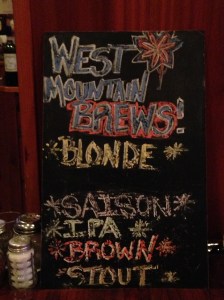 WEST
MOUNTAIN
BREWS!
*BLONDE*
*SAISON*
*IPA*
*BROWN*
*STOUT*